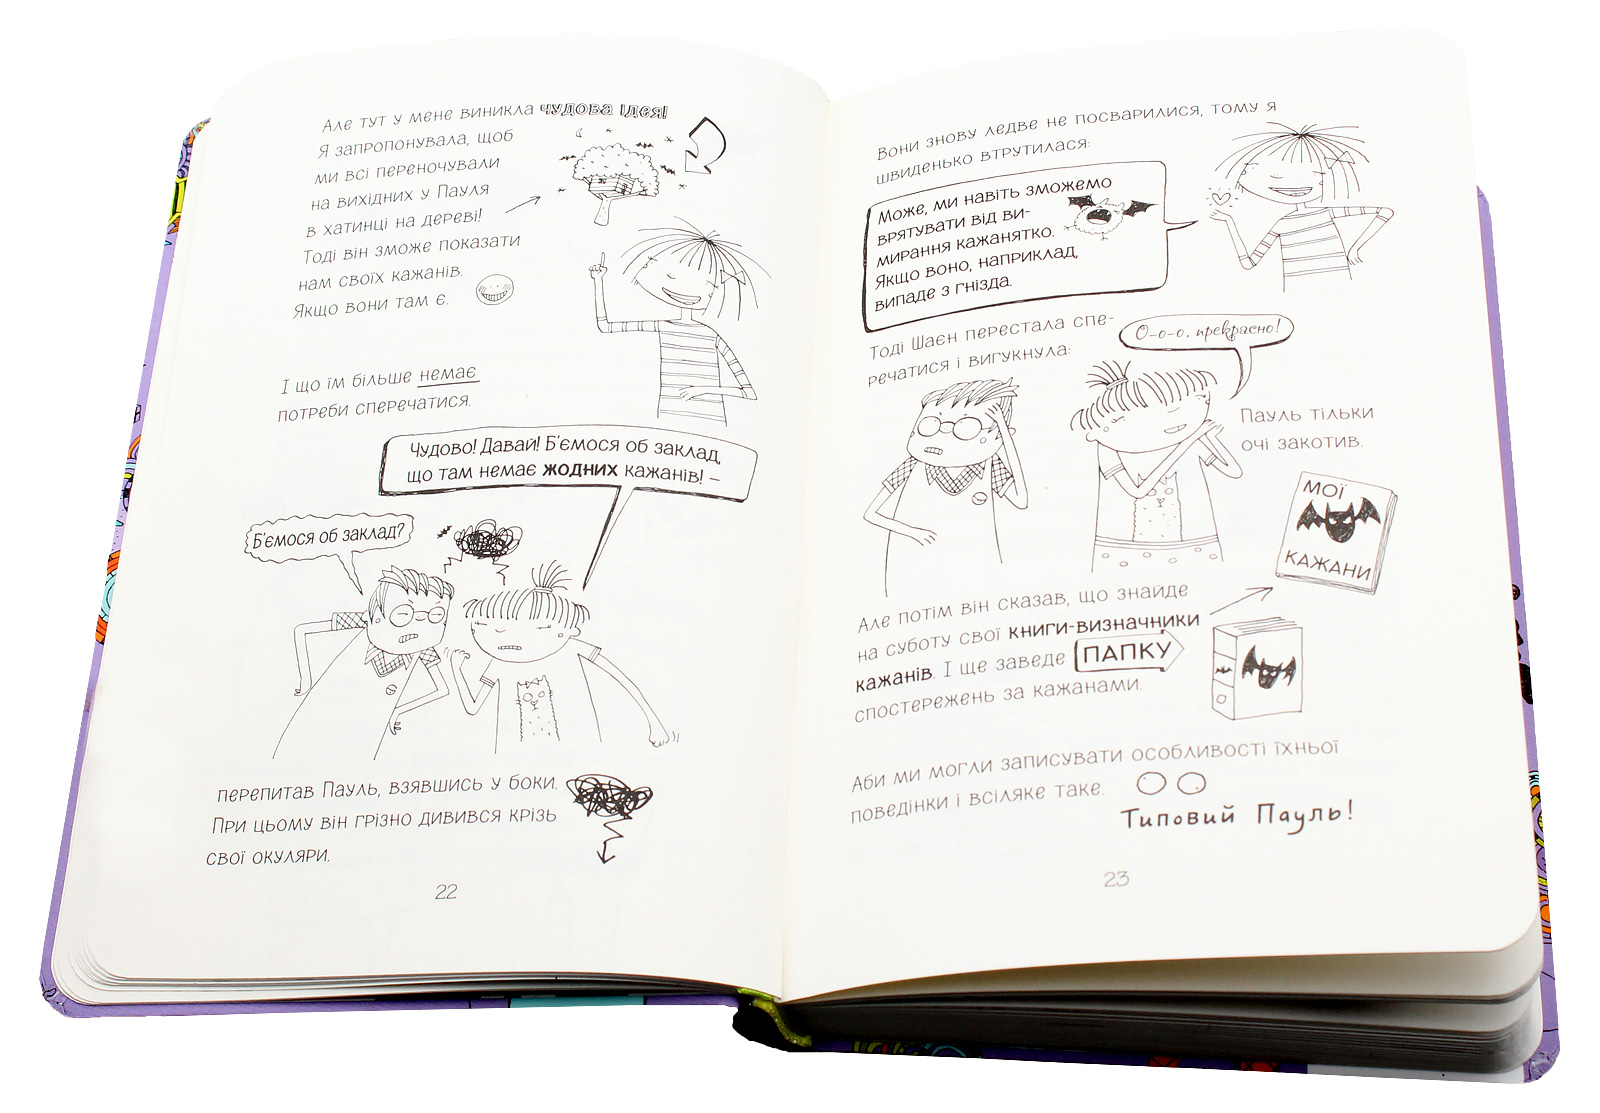 Але тут у мене виникла чудова ідея!
Я запропонувала, щоб
ми всі переночували
на вихідних у Пауля
в хатинці на дереві!
Тоді він зможе показати
нам своїх кажанів.
Якщо вони там є.
І що їм більше немає
потреби сперечатися.
Чудово! Давай! Б'ємося об заклад,
що там немає жодних кажанів! –
Б'ємося об заклад?
перепитав Пауль, взявшись у боки.
При цьому він грізно дивився крізь
свої окуляри.
22
Вони знову ледве не посварилися, тому я
швиденько втрутилася:
Може, ми навіть зможемо
врятувати від ви-
мирання кажанятко.
Якщо воно, наприклад,
випаде з гнізда.
Тоді Шаєн перестала спе-
речатися і вигукнула:
О-о-о, прекрасно!
Пауль тільки
очі закотив.
МОЇ
КАЖАНИ
Але потім він сказав, що знайде
на суботу свої книги-визначники
кажанів. І ще заведе ПАПКУ
спостережень за кажанами.
Аби ми могли записувати особливості їхньої
поведінки і всіляке таке.
Типовий Пауль!
23